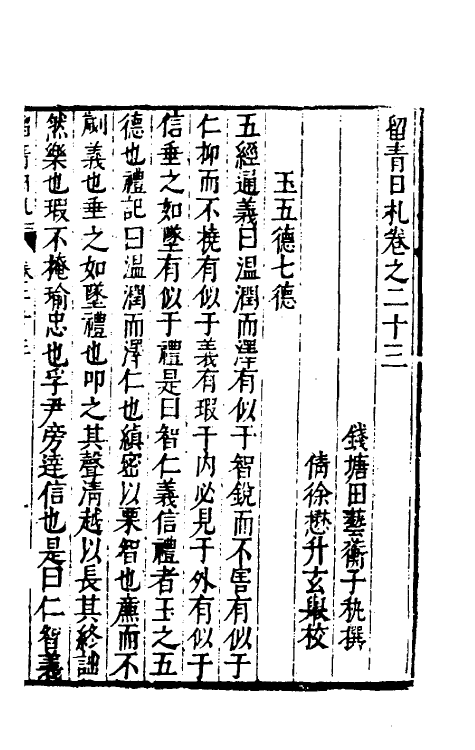 留青日札卷之二十三
錢塘田藝蘅子秇撰
倩徐懋升玄舉校
玉五德七德
五經通義曰温潤而澤有似于智銳而不害有似于
仁抑而不撓有似于義有瑕于内必見于外有似于
信垂之如墜有似于禮是曰智仁義信禮者玉之五
德也禮記曰温潤而澤仁也縝密以栗智也亷而不
劌義也垂之如墜禮也叩之其聲清越以長其終詘
然樂也瑕不掩瑜忠也孚尹旁達信也是曰仁智義